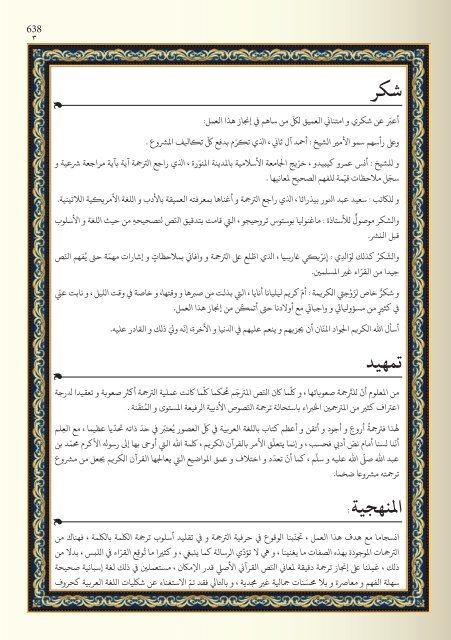 638
٣
شكر
أعبّر عن شكري و امتناني العميق لكلّ من ساهم في إنجاز هذا العمل:
وعلى رأسهم سمو الأمير الشيخ : أحمد آل ثاني ، الذي تكرّم بدفع كلّ تكاليف المشروع .
و للشيخ : أنس عمرو كيبيدو ، خرّيج الجامعة الأسلامية بالمدينة المنوّرة ، الذي راجع الترجمة آية بآية مراجعة شرعية و
سجّل ملاحظات قيّمة للفهم الصحيح لمعانيها .
و للكاتب : سعيد عبد النور بيدراثا ، الذي راجع الترجمة و أغناها بمعرفته العميقة بالأدب و اللغة الأمريكية اللاتينية.
والشكر موصولٌ للأستاذة : ماغنوليا بوستوس تروخيجو ، التي قامت بتدقيق النّص لتصحيحه من حيث اللغة و الأسلوب
قبل النشر.
والشّكرُ كذلك لوَالدي : إنْريكي غارسيا ، الذي اطّلع على الترجمة و وافاني بملاحظاتٍ و إشارات مهمّة حتى يُفهم النّص
جيدا من القرّاء غير المسلمين.
و شكرٌ خاص لزَوْجتي الكريمة : أمّ كريم ليليانا أنايا ، التي بذلت من صبرها و وقتها، و خاصة في وقت الليل ، و نابت عنّي
في كثيرٍ من مسؤولياتي و واجباتي مع أولادنا حتى أتمكّن من إنجاز هذا العمل.
أسأل الله الكريم الجواد المنّان أن يجزيهم و ينعم عليهم في الدنيا و الأخرة، إنّه وليّ ذلك و القادر عليه.
تمهيد
من المعلوم أنّ للترجمة صعوباتها ، و كلّما كان النّص المترجَم مُحكما كلّما كانت عملية الترجمة أكثر صعوبة و تعقيدا لدرجة
اعتراف كثير من المترجمين الخبراء باستحالة ترجمة النّصوص الأدبية الرفيعة المستوى و المُتقنة .
لهذا فترجمةُ أروع و أجود و أتقن و أعظم كتاب باللغة العربية في كلّ العصور يُعتبَر في حدّ ذاته تحدّيا عظيما ، مع العِلم
أنّنا لسنا أمام نصّ أدبي فحسب ، و إنما يتعلّق الأمر بالقرآن الكريم ، كلمة الله التي أوحى بها إلى رسوله الأكرم محمّد بن
عبد الله صلّى الله عليه و سلّم ، كما أنّ تعدّد و اختلاف و عمق المواضيع التي يعالجها القرآن الكريم يجعل من مشروع
ترجمته مشروعا ضخما.
المنهجية :
انسجاما مع هدف هذا العمل ، تجنّبنا الوقوع في حرفية الترجمة و في تقليد أسلوب ترجمة الكلمة بالكلمة ، فهناك من
الترجمات الموجودة بهذه الصفات ما يغنينا ، و هي لا تؤدّي الرسالة كما ينبغي ، و كثيرا ما تُوقِع القرّاء في اللبس ، بدلا من
ذلك ، عَمِلنا على إنجاز ترجمة دقيقة لمعاني النّص القرآني الأصلي قدر الإمكان ، مستعملين في ذلك لغة إسبانية صحيحة
سهلة الفهم و معاصرة و بلا محسّنات جمالية غير مجدية ، و بالتالي فقد تمّ الاستغناء عن شكليات اللغة العربية كحروف